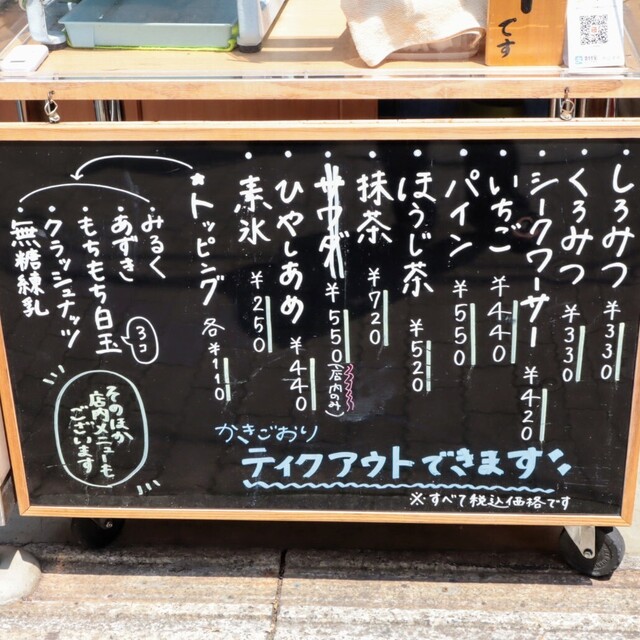 です
・しろみつ ¥330
・くろみつ ¥330
・シークワーサー ¥420
・いちご ¥440
・パイン ¥550
・ほうじ茶 ¥520
・抹茶 ¥720
・サウダ ¥550(店内のみ)
・ひやしあめ ¥440
・素氷 ¥250
★トッピング 各¥110
・みるく
・あずき
・もちもち白玉 3コ
・クラッシュナッツ
・無糖練乳
そのほか
店内メニューも
ございます
かきごおり
ティクアウトできます
※すべて税込価格です